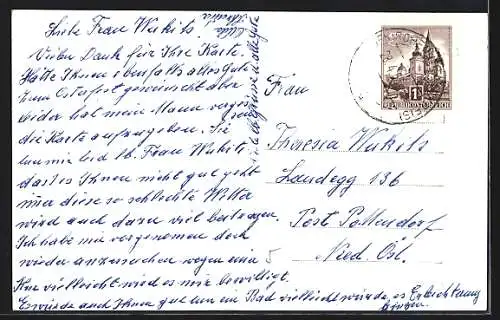 Liebe Frau Wukits!
Vielen Dank für Ihre Karte.
Hätte Ihnen ebenfalls alles gute
zum Osterfest gewünscht aber
leider hat mein Mann verges
sen
die Karte aufzugeben. Sie
tun mir leid lb. Frau Wukits
dass es Ihnen nicht gut geht
nur diese so schlechte Wetter
wird auch dazu viel beitragen.
Ich habe mir vorgenommen doch
wieder anzusuchen wegen eine
Kur vielleicht wird es mir bewilligt.
Es würde auch Ihnen gut tun ein Bad vielleicht würde es Erleichterung
bringen.
Viele liebe Grüsse u. alles gute
Frau
Theresia Wukits
Landegg 136
Post Pottendorf
Nied. Öst.
1S
REPUBLIK ÖSTERREICH